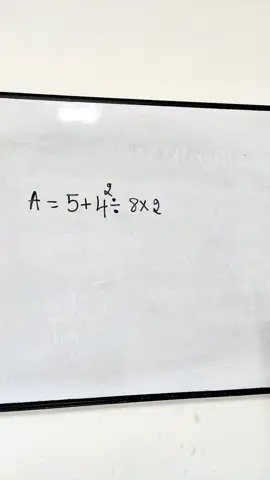 A = 5+4²÷ 8×2